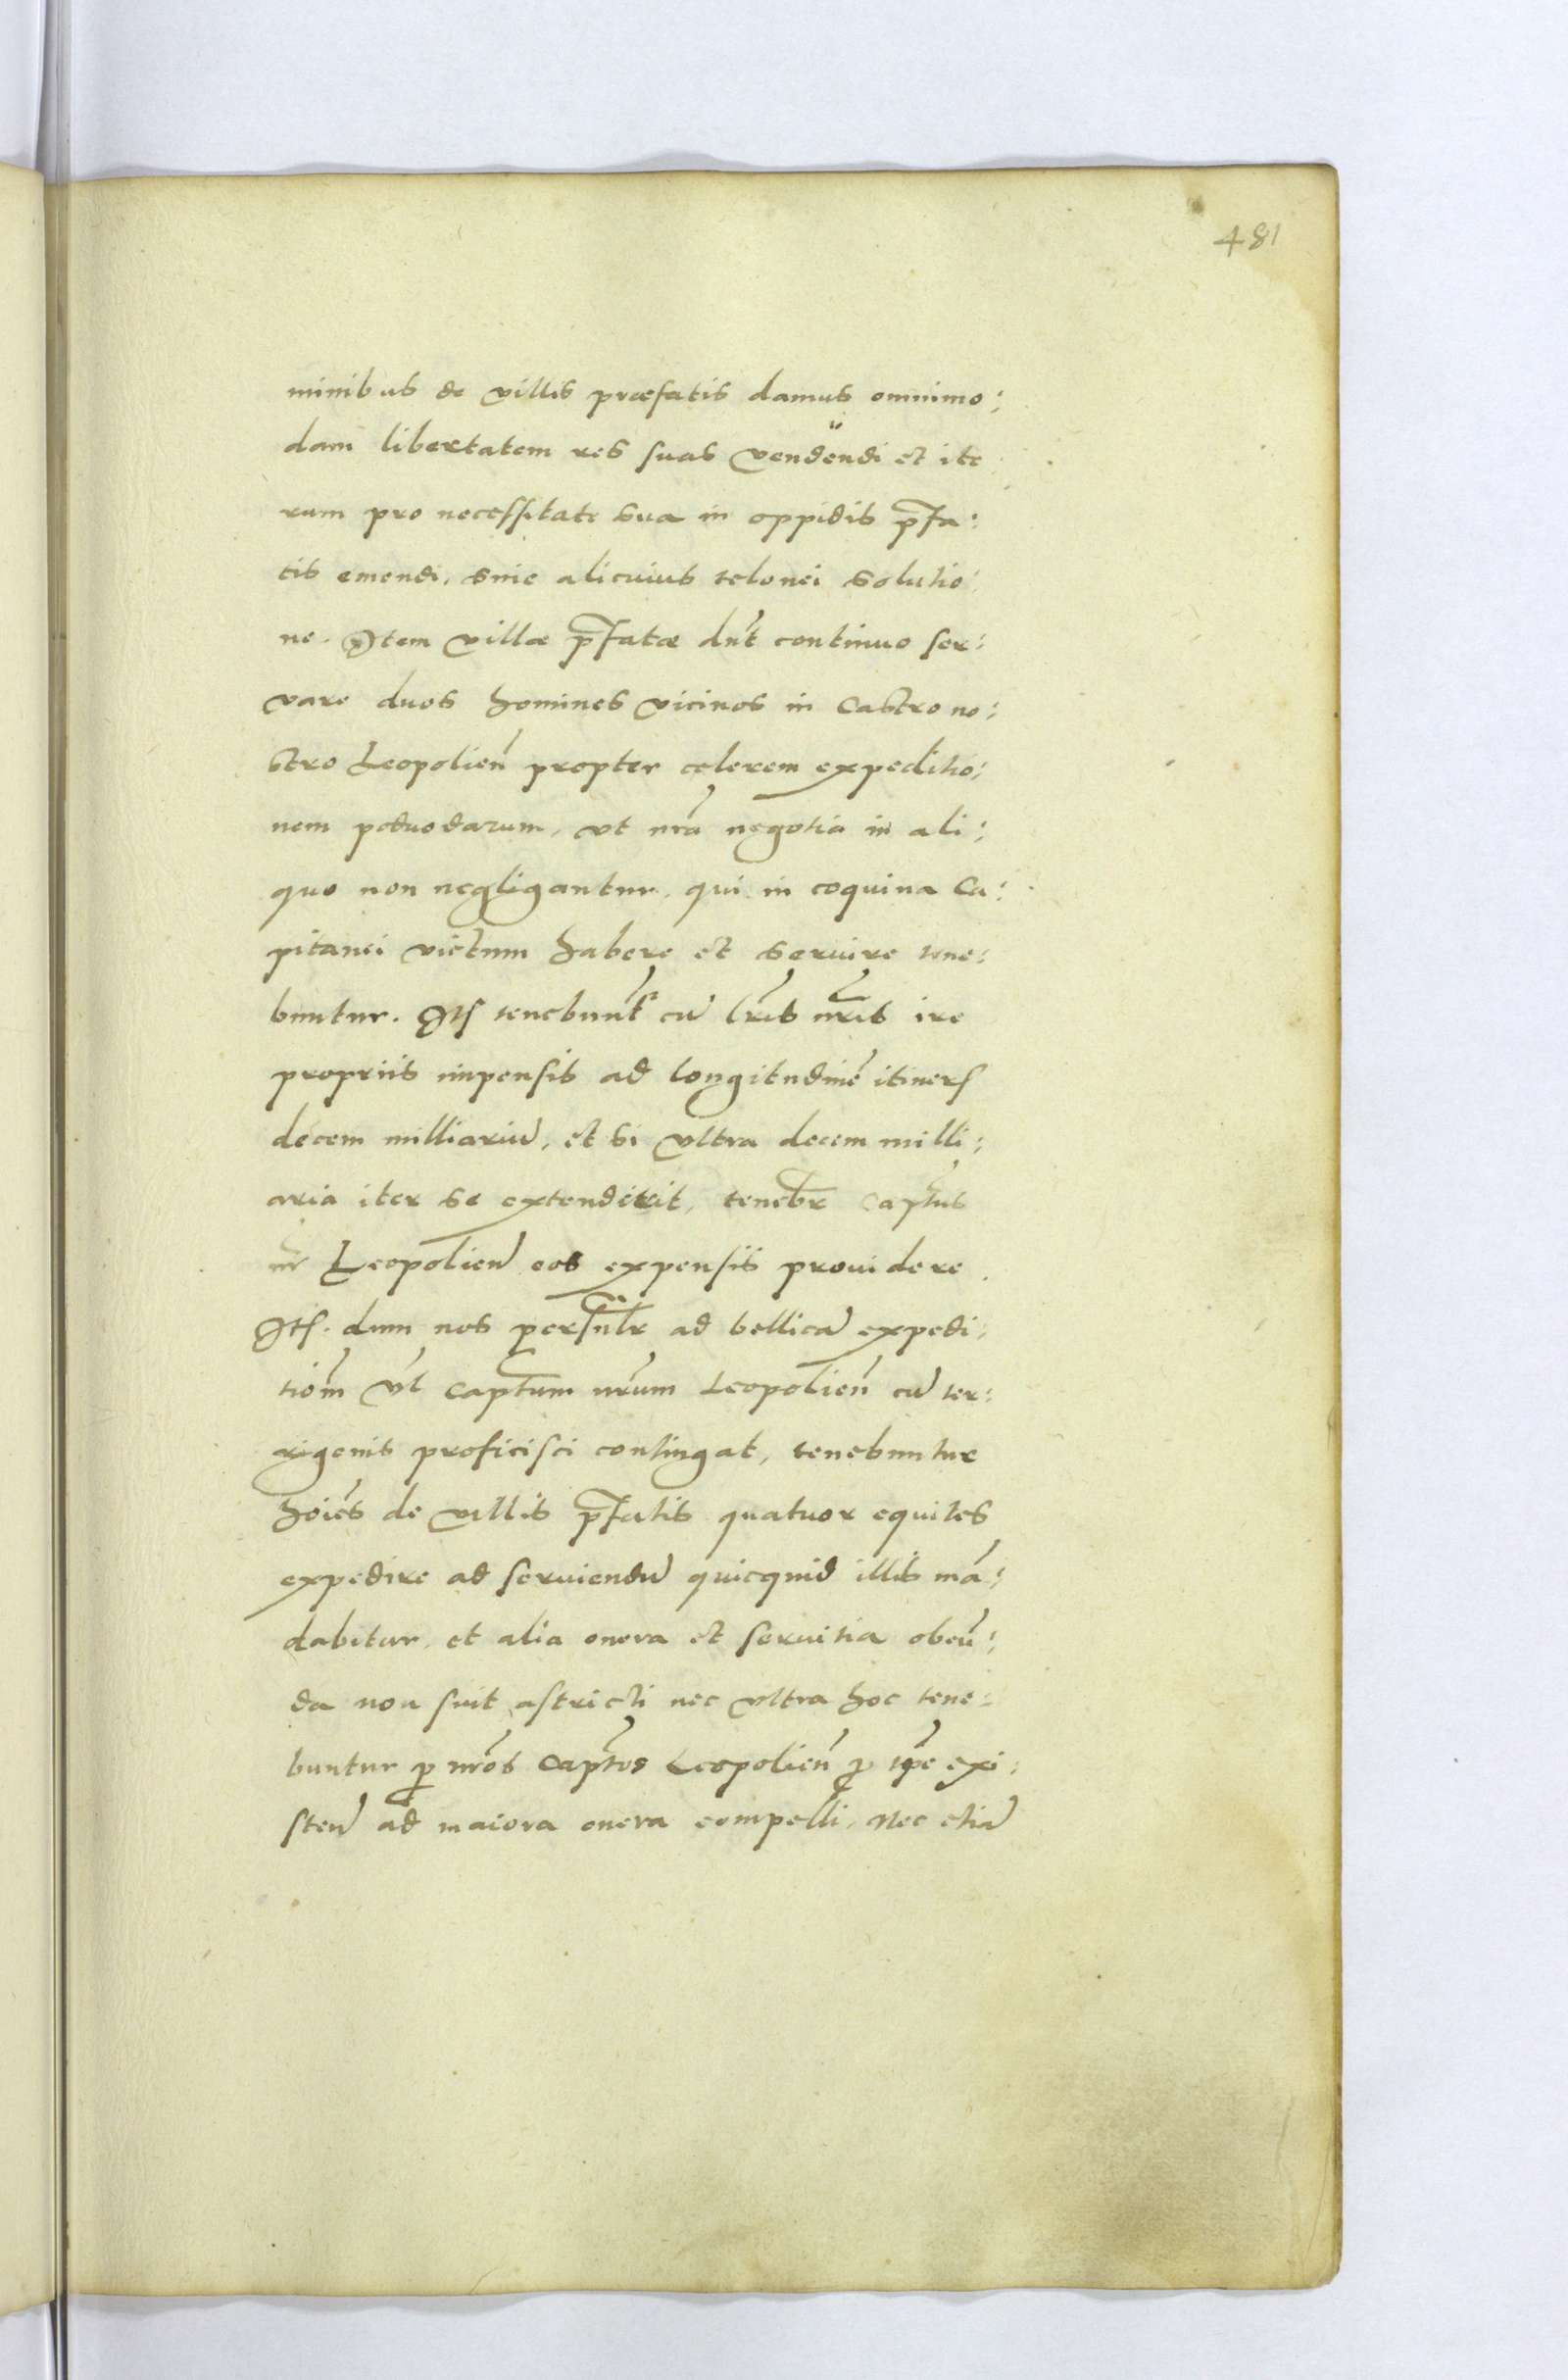 481
minibus de villis præfatis damus omnimo:
dam libertatem res suas vendendi et ite
rum pro necessitate sua in oppidis p̃fa:
tis emendi, sine alicuius telonei solutio:
ne. Item villæ p̃fatæ dn̄t continuo ser:
vare duos homines vicinos in Castro no:
stro Leopolien̄ propter celerem expeditio:
nem poduodarum, ut nr̄a negotia in ali:
quo non negligantur, qui in coquina Ca:
pitanei victum habere et servire tene:
buntur. Itē tenebunt̄ cū lr̄is nr̄is ire
propriis impensis ad longitudinē itineris
decem milliariū, et si ultra decem milli:
aria iter se extenderit, tenebr̄ Captus
nr̄ Leopolien̄ eos expensis providere
Itē. dum nos persnlr̄ ad bellicā expedi:
tiom̄ vl̄ capt̄um nr̄um Leopolien̄ cū ter:
rigenis proficisci contingat, tenebuntur
hoīes de villis p̃fatis quatuor equites
expedire ad serviendū quicquid illis mā:
dabitur, et alia onera et servitia obeū:
da non suīt astricti nec ultra hoc tene:
buntur p̄ nr̄os Capt̄os Leopolien̄ p̄ tp̄e exi:
sten̄ ad maiora onera compelli, Nec etiā